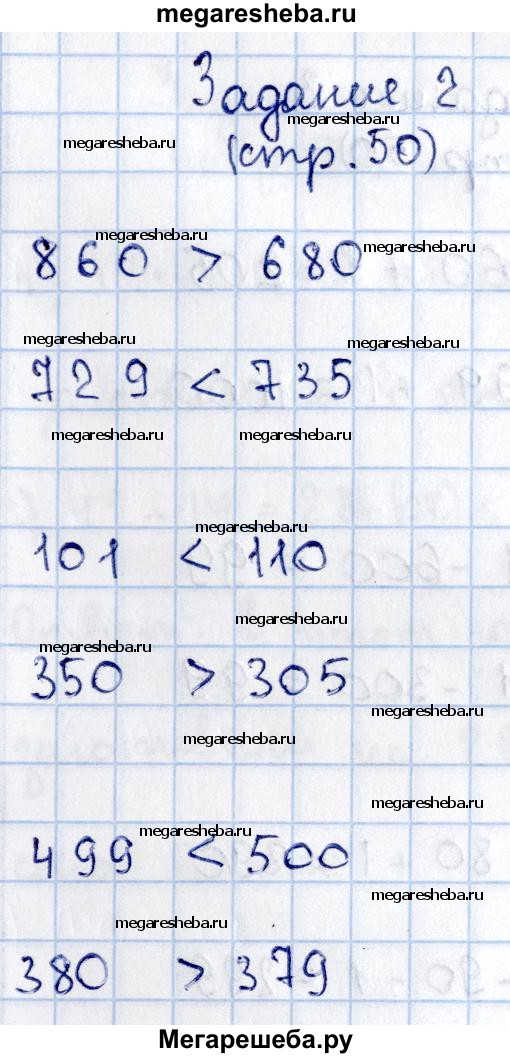 megaresheba.ru
Задание 2
megaresheba.ru
megaresheba.ru
(стр. 50)
megaresheba.ru
megaresheba.ru
860 > 680
megaresheba.ru
megaresheba.ru
729 < 735
megaresheba.ru megaresheba.ru
megaresheba.ru
101 < 110
megaresheba.ru
megaresheba.ru
350 > 305
megaresheba.ru
megaresheba.ru
megaresheba.ru
megaresheba.ru
499 < 500
megaresheba.ru
megaresheba.ru
380 > 379
Мегарешеба.ру